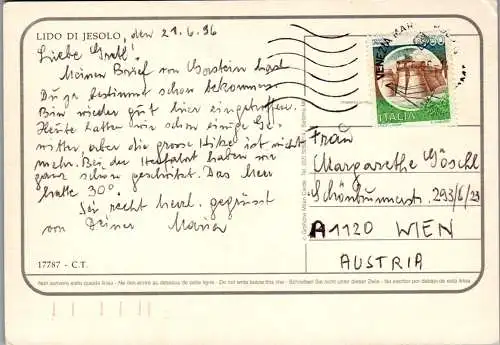 LIDO DI JESOLO, den 21.6.96
Liebe Gretl!
Meinen Brief von
Du ja bestimmt schon bekommen.
Bin wieder gut hier eingetroffen.
Heute hatten wir schon einige Ge-
witter, aber die große Hitze ist nicht
mehr. Bei der Herfahrt haben wir
ganz schön geschwitzt. Das Meer
hatte 30°.
Sei recht herzl. gegrüsst
von Deiner Maria
17787 - C.T.
VENEZIA MAR
ITALIA
Frau
Margarethe Göschl
Schönbrunnerstr. 293/6/23
A 1120 WIEN
AUSTRIA
Non scrivere sotto questa linea - Ne rien écrire au dessous de cette ligne - Do not write below this line - Schreiben Sie nicht unter dieser Zeile - No escribir por debajo de esta línea